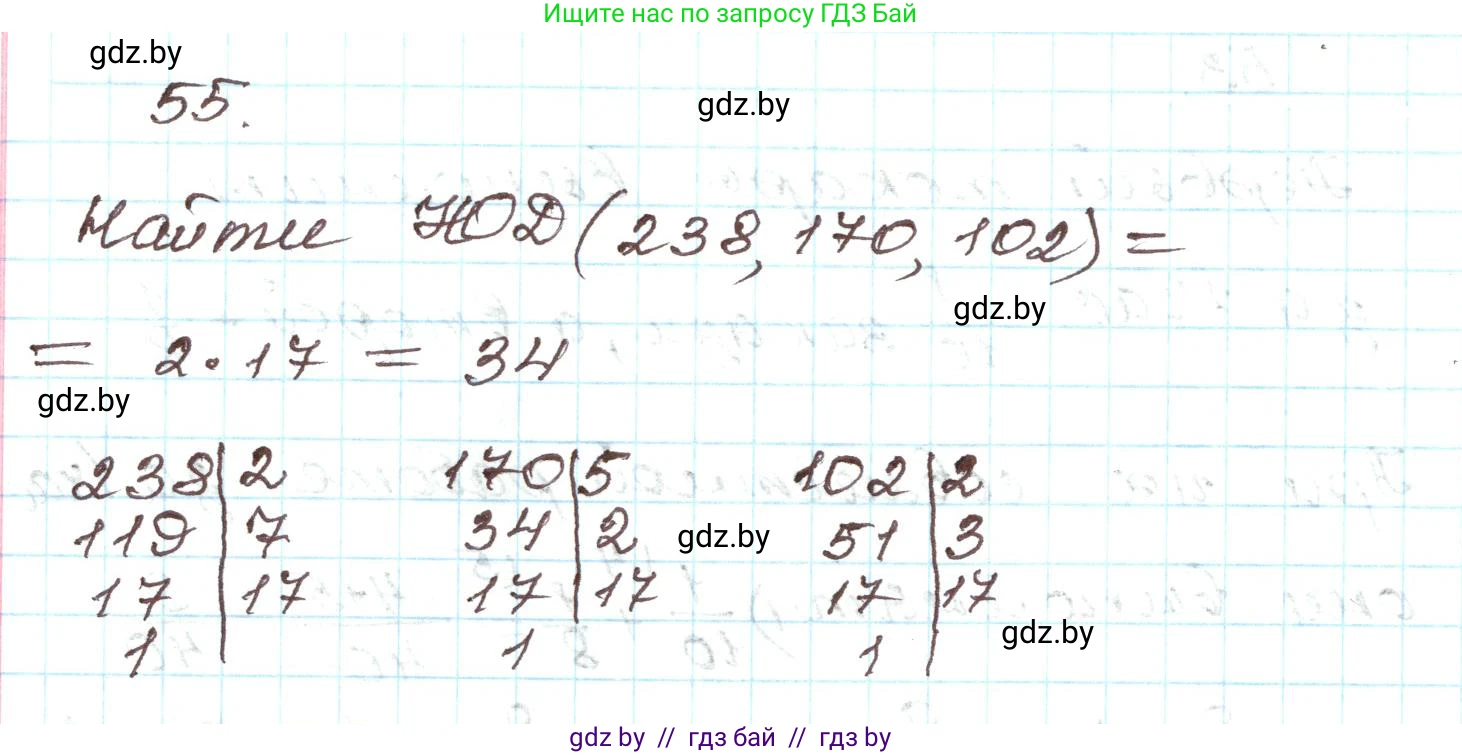 Ищите нас по запросу ГДЗ Бай
gdz.by
55.
gdz.by
Найти НОД(238, 170, 102) =
gdz.by
= 2·17 = 34
gdz.by
238|2 170|5 102|2
119|7 34|2 51|3
gdz.by
17|17 17|17 17|17
1 1 1
gdz.by
gdz.by // гдз бай // гдз by